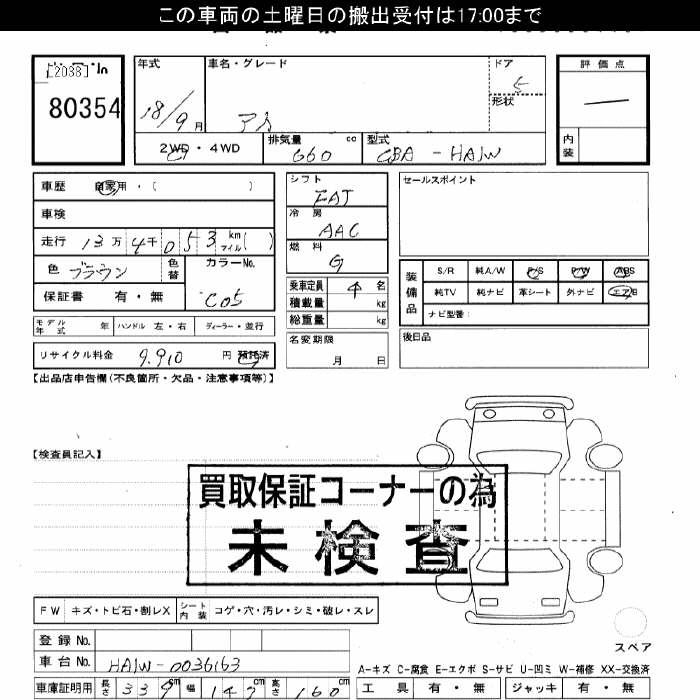 この車両の土曜日の搬出受付は17:00まで
[2038] No
80354
年式 18/9月
車名・グレード アイ
ドア 5
形状
評価点 —
内装
2WD・4WD
排気量 660 cc
型式 CBA - HA1W
車歴 自家用・( )
車検
走行 13万 4千 0 5 3 km マイル ( )
色 ブラウン 色替
カラーNo. C05
保証書 有・無
モデル年式 年 ハンドル 左・右 ディーラー・並行
リサイクル料金 9,910 円 預託済
シフト FAT
冷房 AAC
燃料 G
乗車定員 4 名
積載量 kg
総重量 kg
名変期限 月 日
セールスポイント
装備品
S/R 純A/W P/S P/W ABS
純TV 純ナビ 革シート 外ナビ エアB
ナビ型番:
後日品
【出品店申告欄(不良箇所・欠品・注意事項等)】
【検査員記入】
買取保証コーナーの為
未検査
FW キズ・トビ石・割レX シート内装 コゲ・穴・汚レ・シミ・破レ・スレ
登録No.
車台No. HA1W-0036163
車庫証明用 長さ 339 cm 幅 147 cm 高さ 160 cm
スペア
A-キズ C-腐食 E-エクボ S-サビ U-凹ミ W-補修 XX-交換済
工具 有・無 ジャッキ 有・無